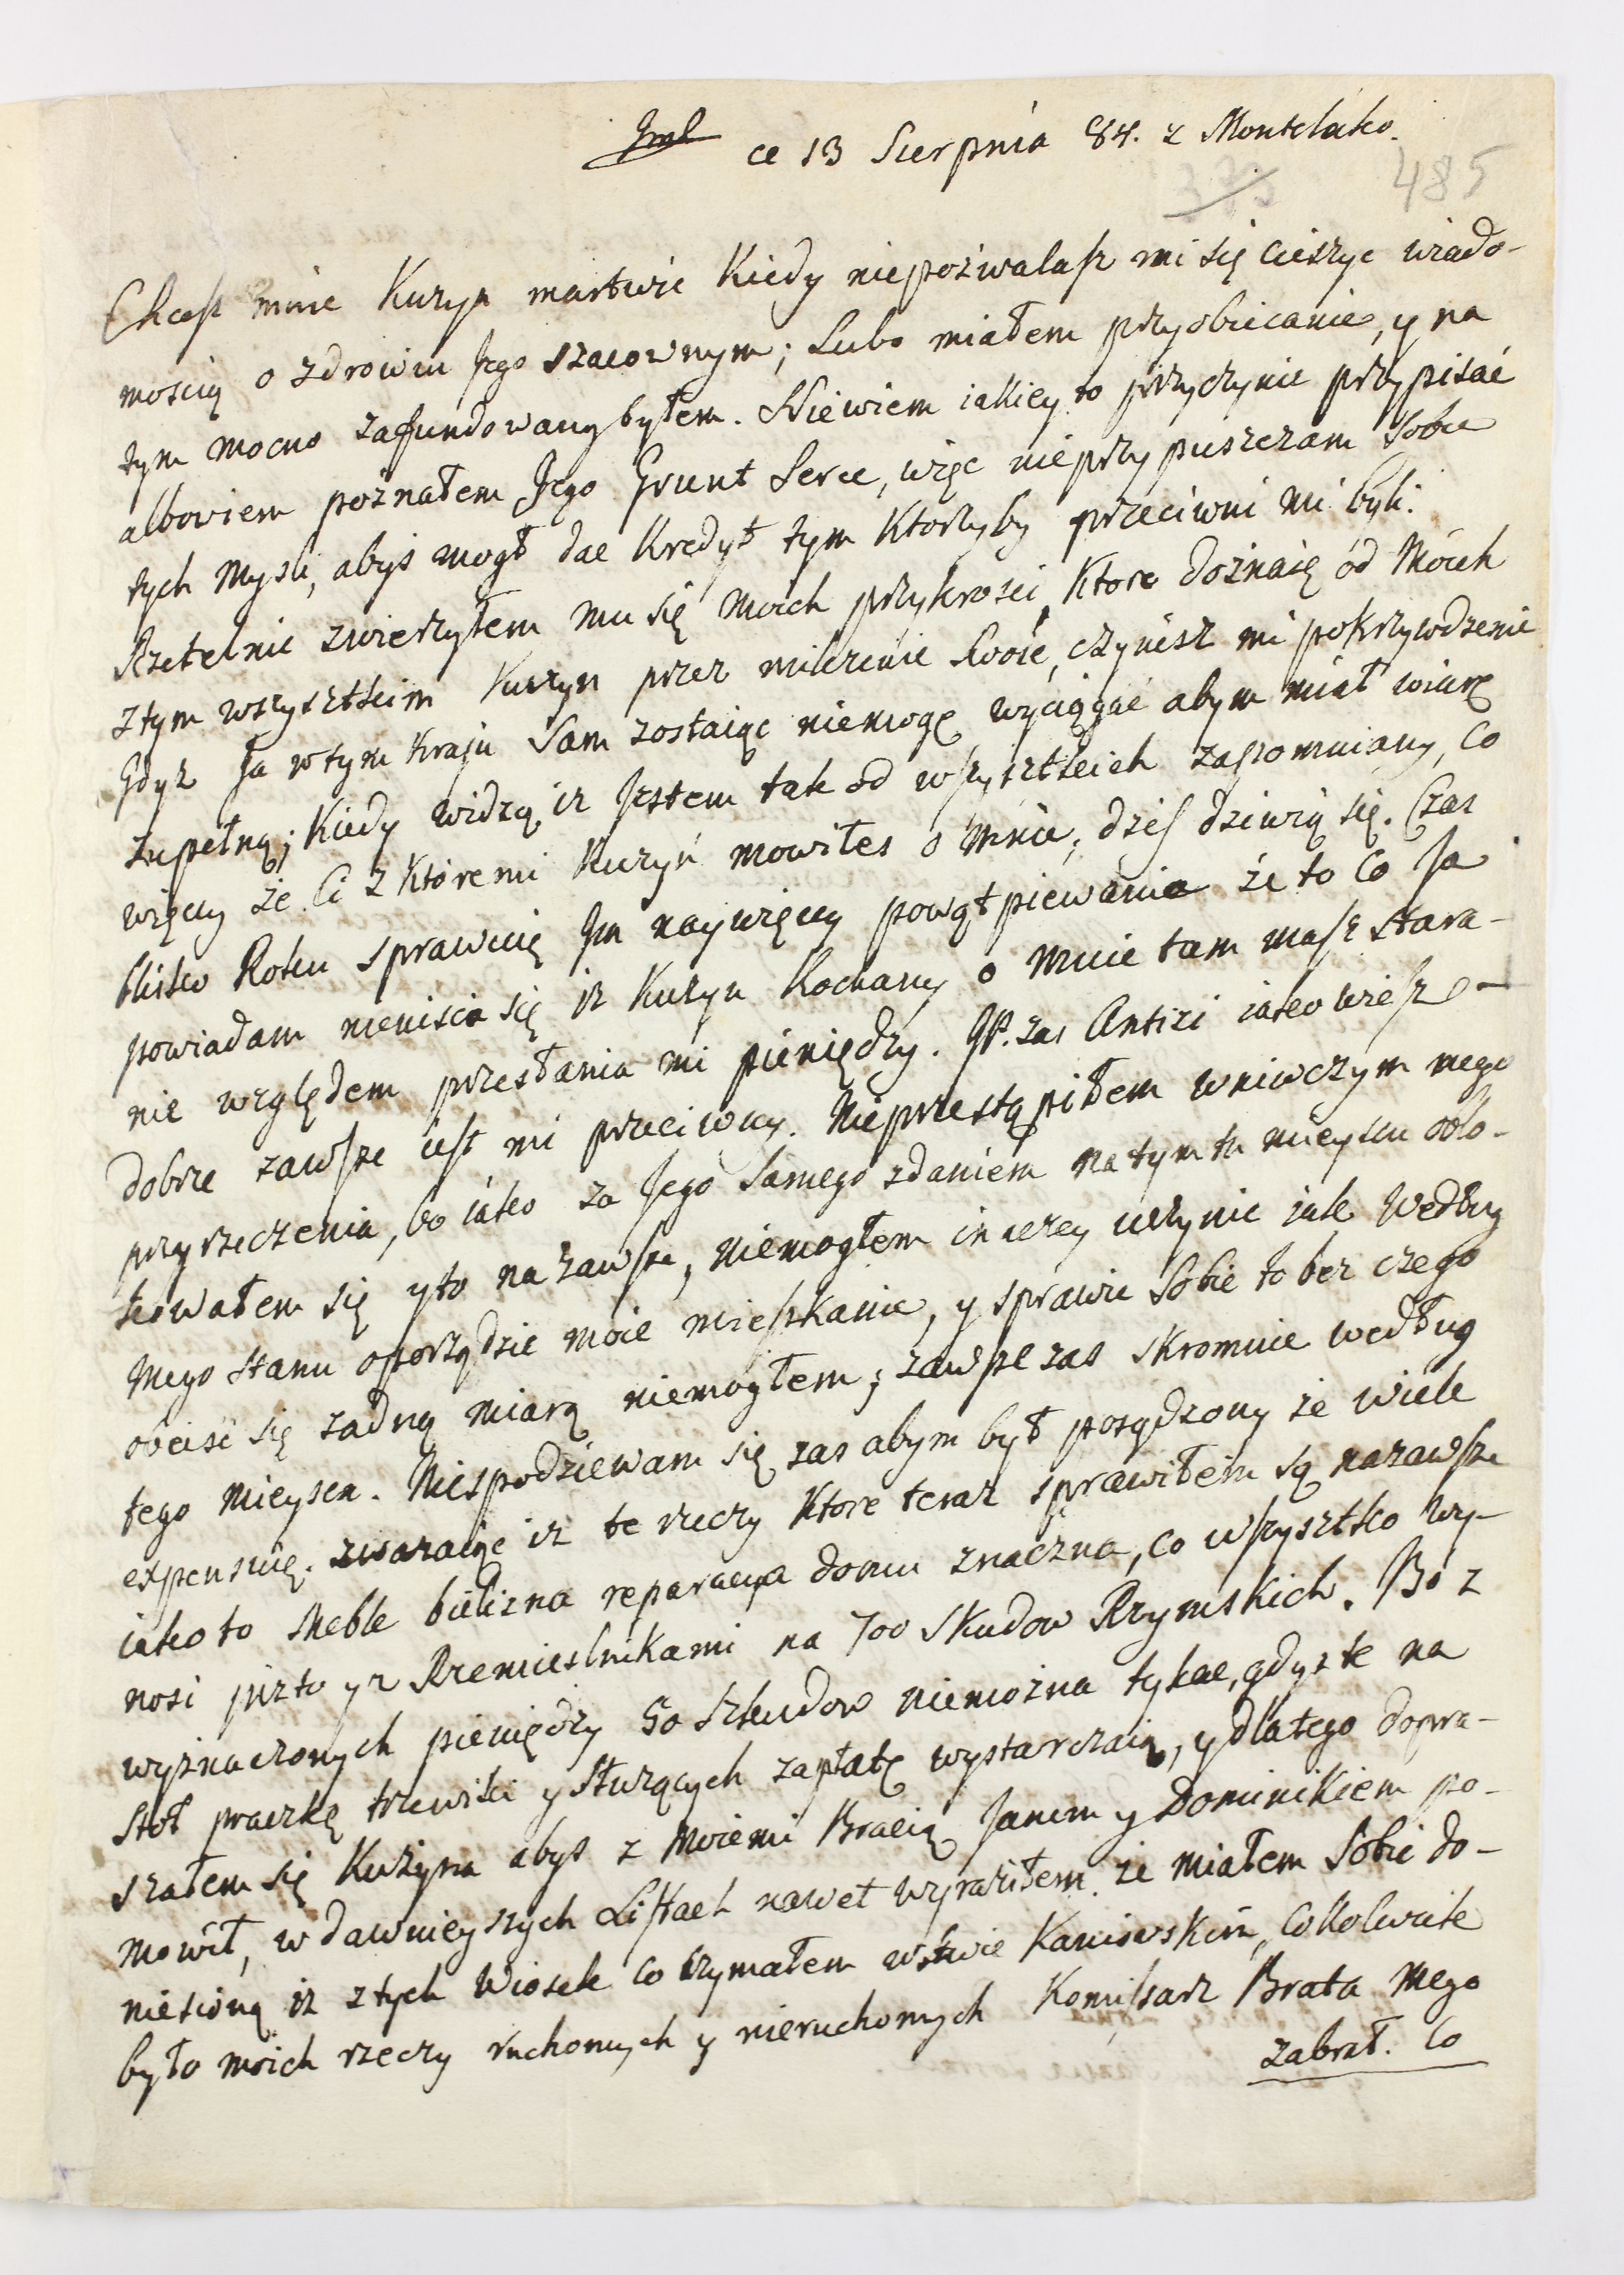 ce 13 Sierpnia 84. z Montelako.
485
Chcesz mnie Kuzyn martwić Kiedy niepozwalasz mi się Cieszyc wiado-
mością o zdrowiu Jego szacownym; Lubo miałem przyobiecanie, y na
tym mocno zafundowany byłem. Niewiem iakiey to przyczynie przypisać
albowiem poznałem Jego Grunt Serce, więc nieprzypuszczam Sobie
tych mysli, abyś mogł dac Kredyt tym Ktorzyby przeciwni mi byli.
Rzetelnie zwierzyłem mu się moich przykrosci, Ktore doznaię od Moich
z tym wszysztkim Kuzyn przez milczenie Swoie, czynisz mi pokrzywdzenie
Gdyz Ja w tym Kraju Sam zostaiąc niemogę wyciągać abym miał wiarę
zupełną; Kiedy widzą iz Jestem tak od wszysztkich zapomniany, Co
więcey że Ci z Ktoremi Kuzyn mowiłes o mnie, dziś dziwią się. Czas
blisko Roku sprawuię Im naywięcey powątpiewania że to Co Ja
powiadam nieniscia się iz Kuzyn Kochany o mnie tam masz stara-
nie względem przesłania mi pieniędzy. JP. zas Antici iako wiesz
dobrze zawsze iest mi przeciwny. Nieprzestąpiłem w niwczym mego
przyrzeczenia, bo iako za Jego Samego zdaniem na tym tu mieyscu ulo-
kowałem się y to na zawsze, niemogłem inaczey uczynic iak Według
Mego stanu oporządzic moie mieszkanie, y sprawic Sobie to bez czego
obeiść się zadną miarą niemogłem; zawsze zas skromnie według
tego mieysca. Niespodziewam się zas abym był posądzony że wiele
expensuię. zwazaiąc iz te rzeczy Ktore teraz sprawiłem są na zawsze
iako to Meble bielizna reparacya domu znaczna, co wszysztko wy-
nosi już to y z Rzemieslnikami na 700 Skudow Rzymskich. Bo z
wyznaczonych pieniędzy 50 Szkudow niemozna tykac, gdyz te na
Stoł praczkę trzewiki y Służących zapłatę wystarczaią, y dlatego dopra-
szałem się Kuzyna abys z Moiemi Bracią Janem y Dominikiem po-
mowił, w dawnieyszych Listach nawet wyraziłem że miałem Sobie do-
niesioną iz z tych Wiosek co trzymałem w Kaniowskim, Cokolwiek
było moich rzeczy ruchomych y nieruchomych Komissarz Brata Mego
zabrał. Co